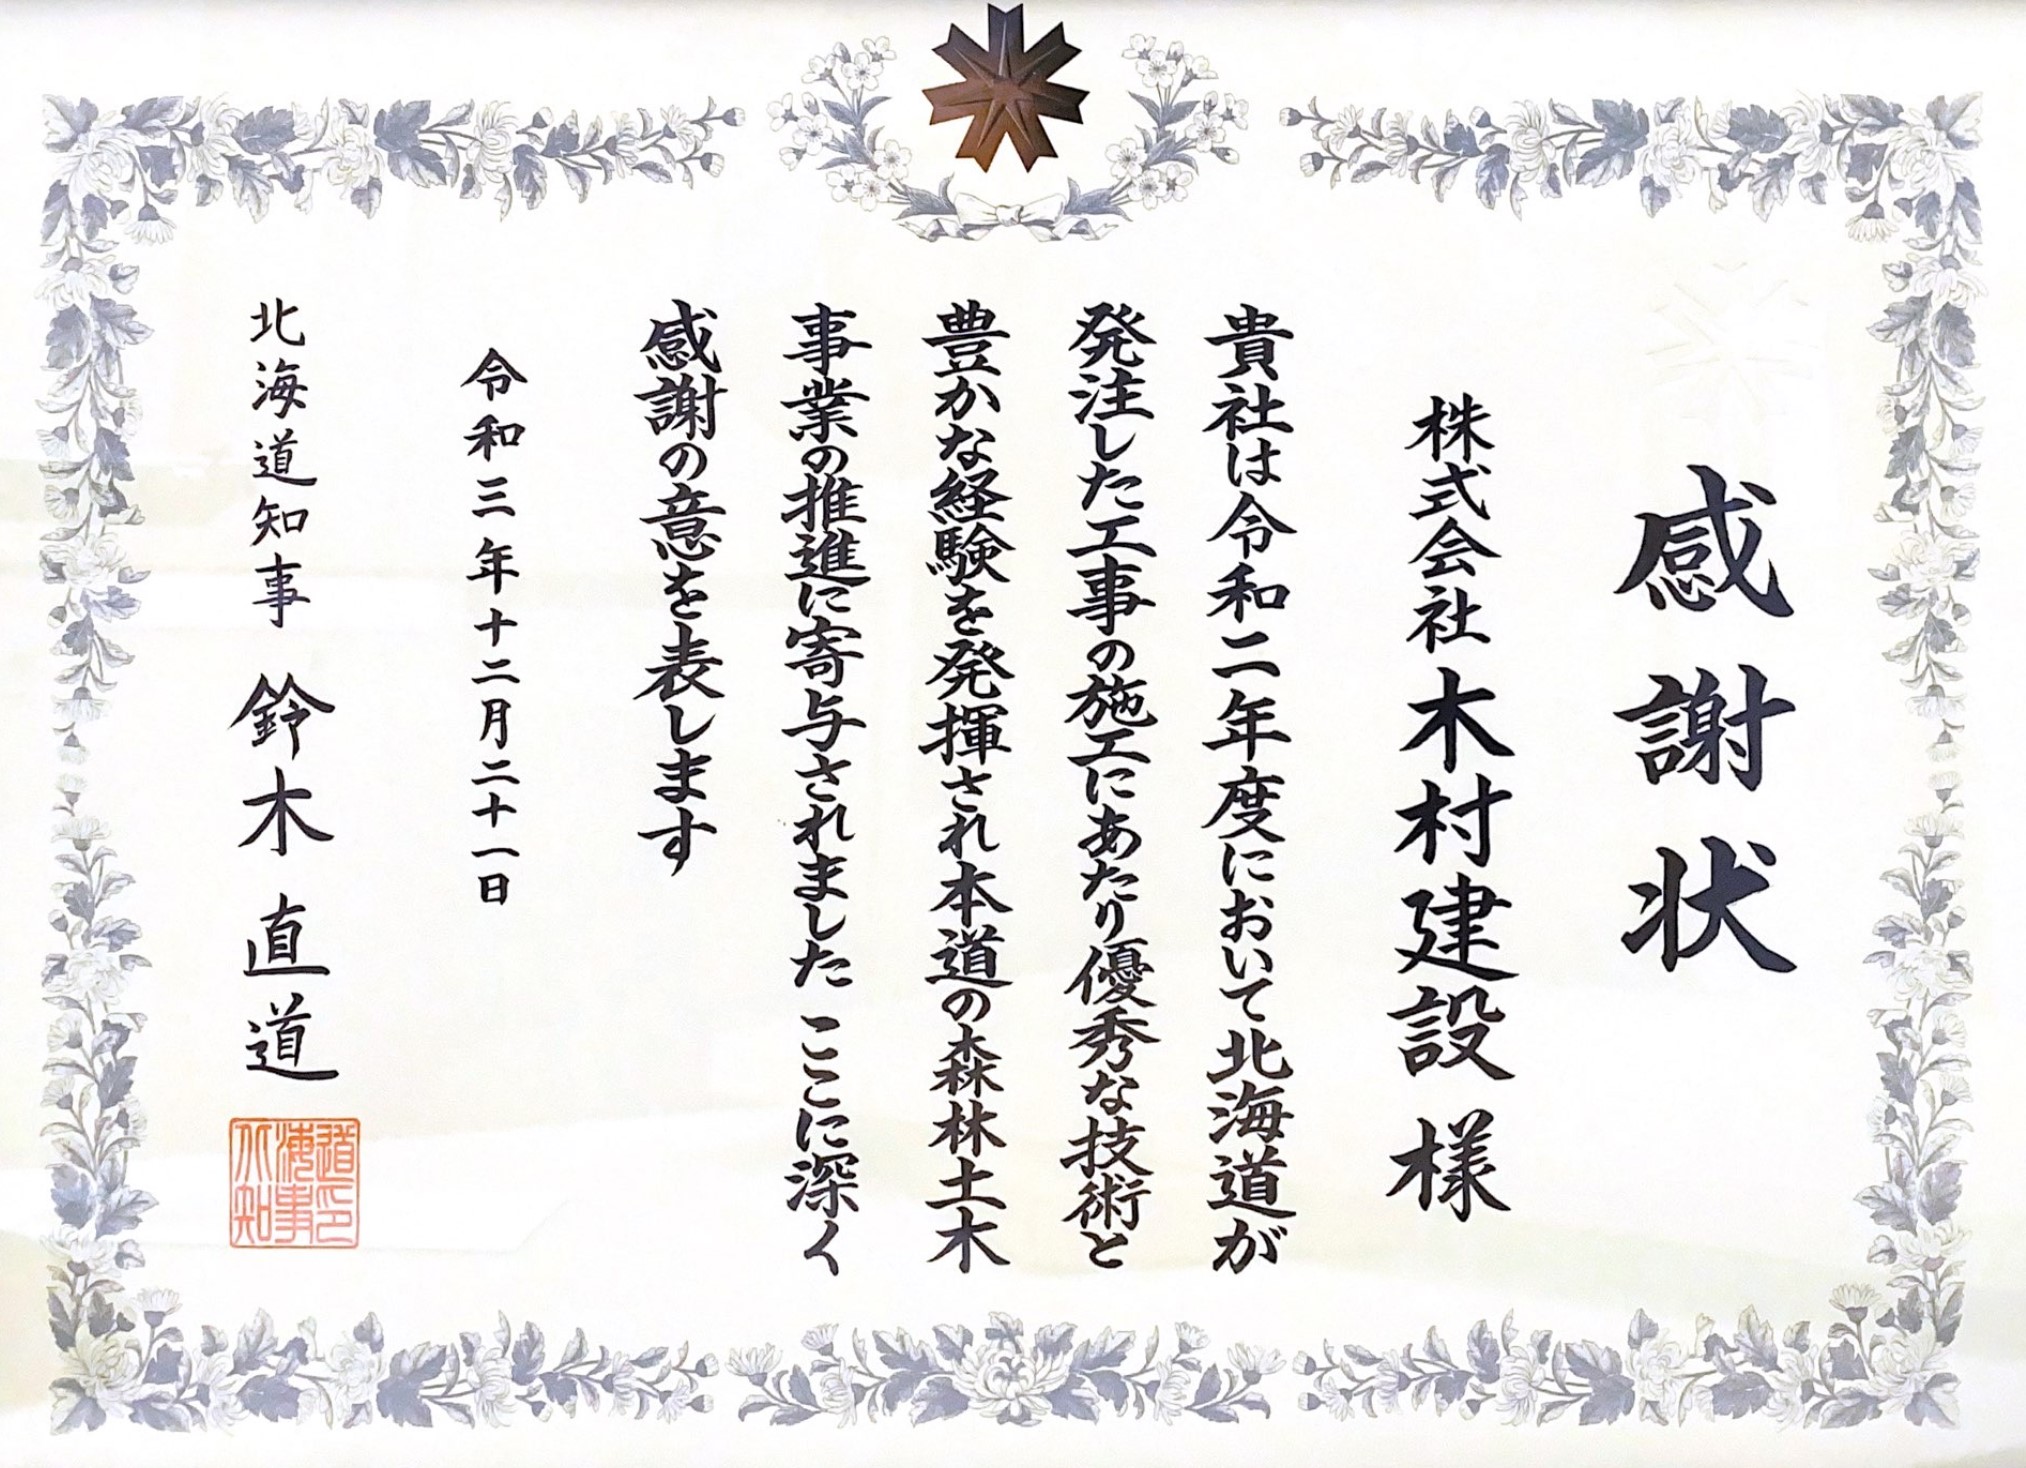 感謝状
株式会社木村建設 様
貴社は令和二年度において北海道が
発注した工事の施工にあたり優秀な技術と
豊かな経験を発揮され本道の森林土木
事業の推進に寄与されました ここに深く
感謝の意を表します
令和三年十二月二十一日
北海道知事 鈴木直道
北海道知事印